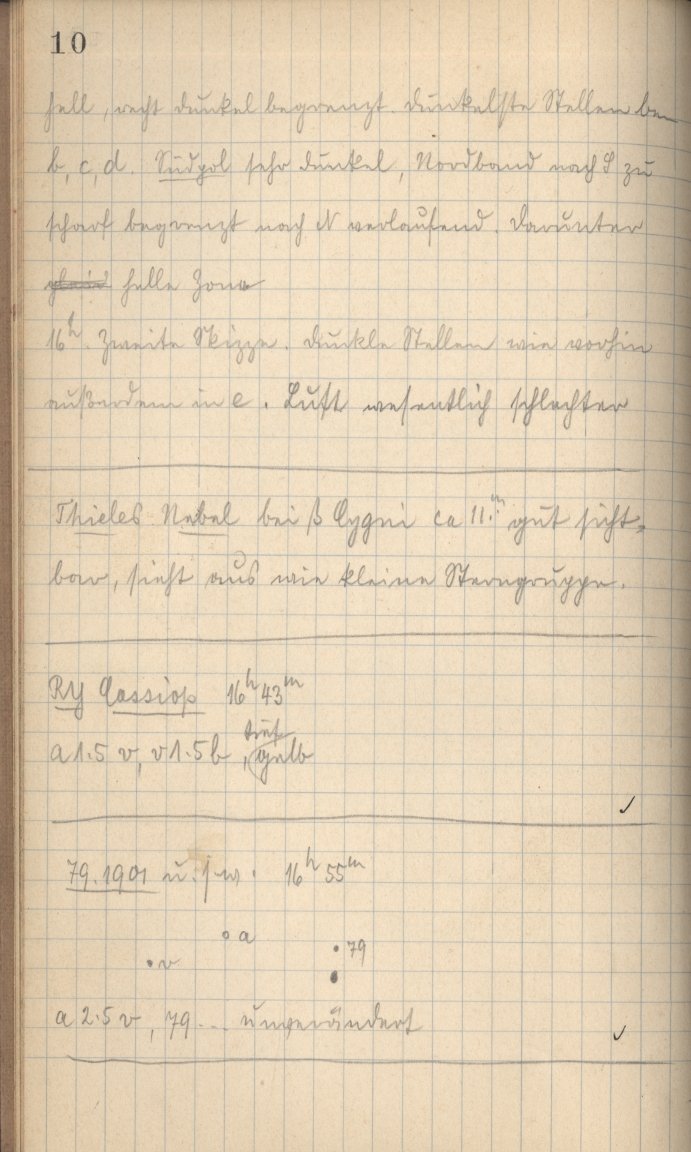 10
hell, recht dunkel begrenzt. Dunkelste Stellen bei
b, c, d. Südpol sehr dunkel, Nordband nach S zu
scharf begrenzt nach N verlaufend. Darunter
helle Zone
16h. Zweite Skizze. Dunkle Stellen wie vorhin
außerdem in e. Luft wesentlich schlechter
Thieles Nebel bei β Cygni ca 11.m gut sicht-
bar, sieht aus wie kleine Sterngruppe.
RY Cassiop 16h 43m
a 1.5 v, v 1.5 b, tief gelb
79.1901 u.s.w. 16h 55m
a
79
v
a 2.5 v, 79 ... unverändert